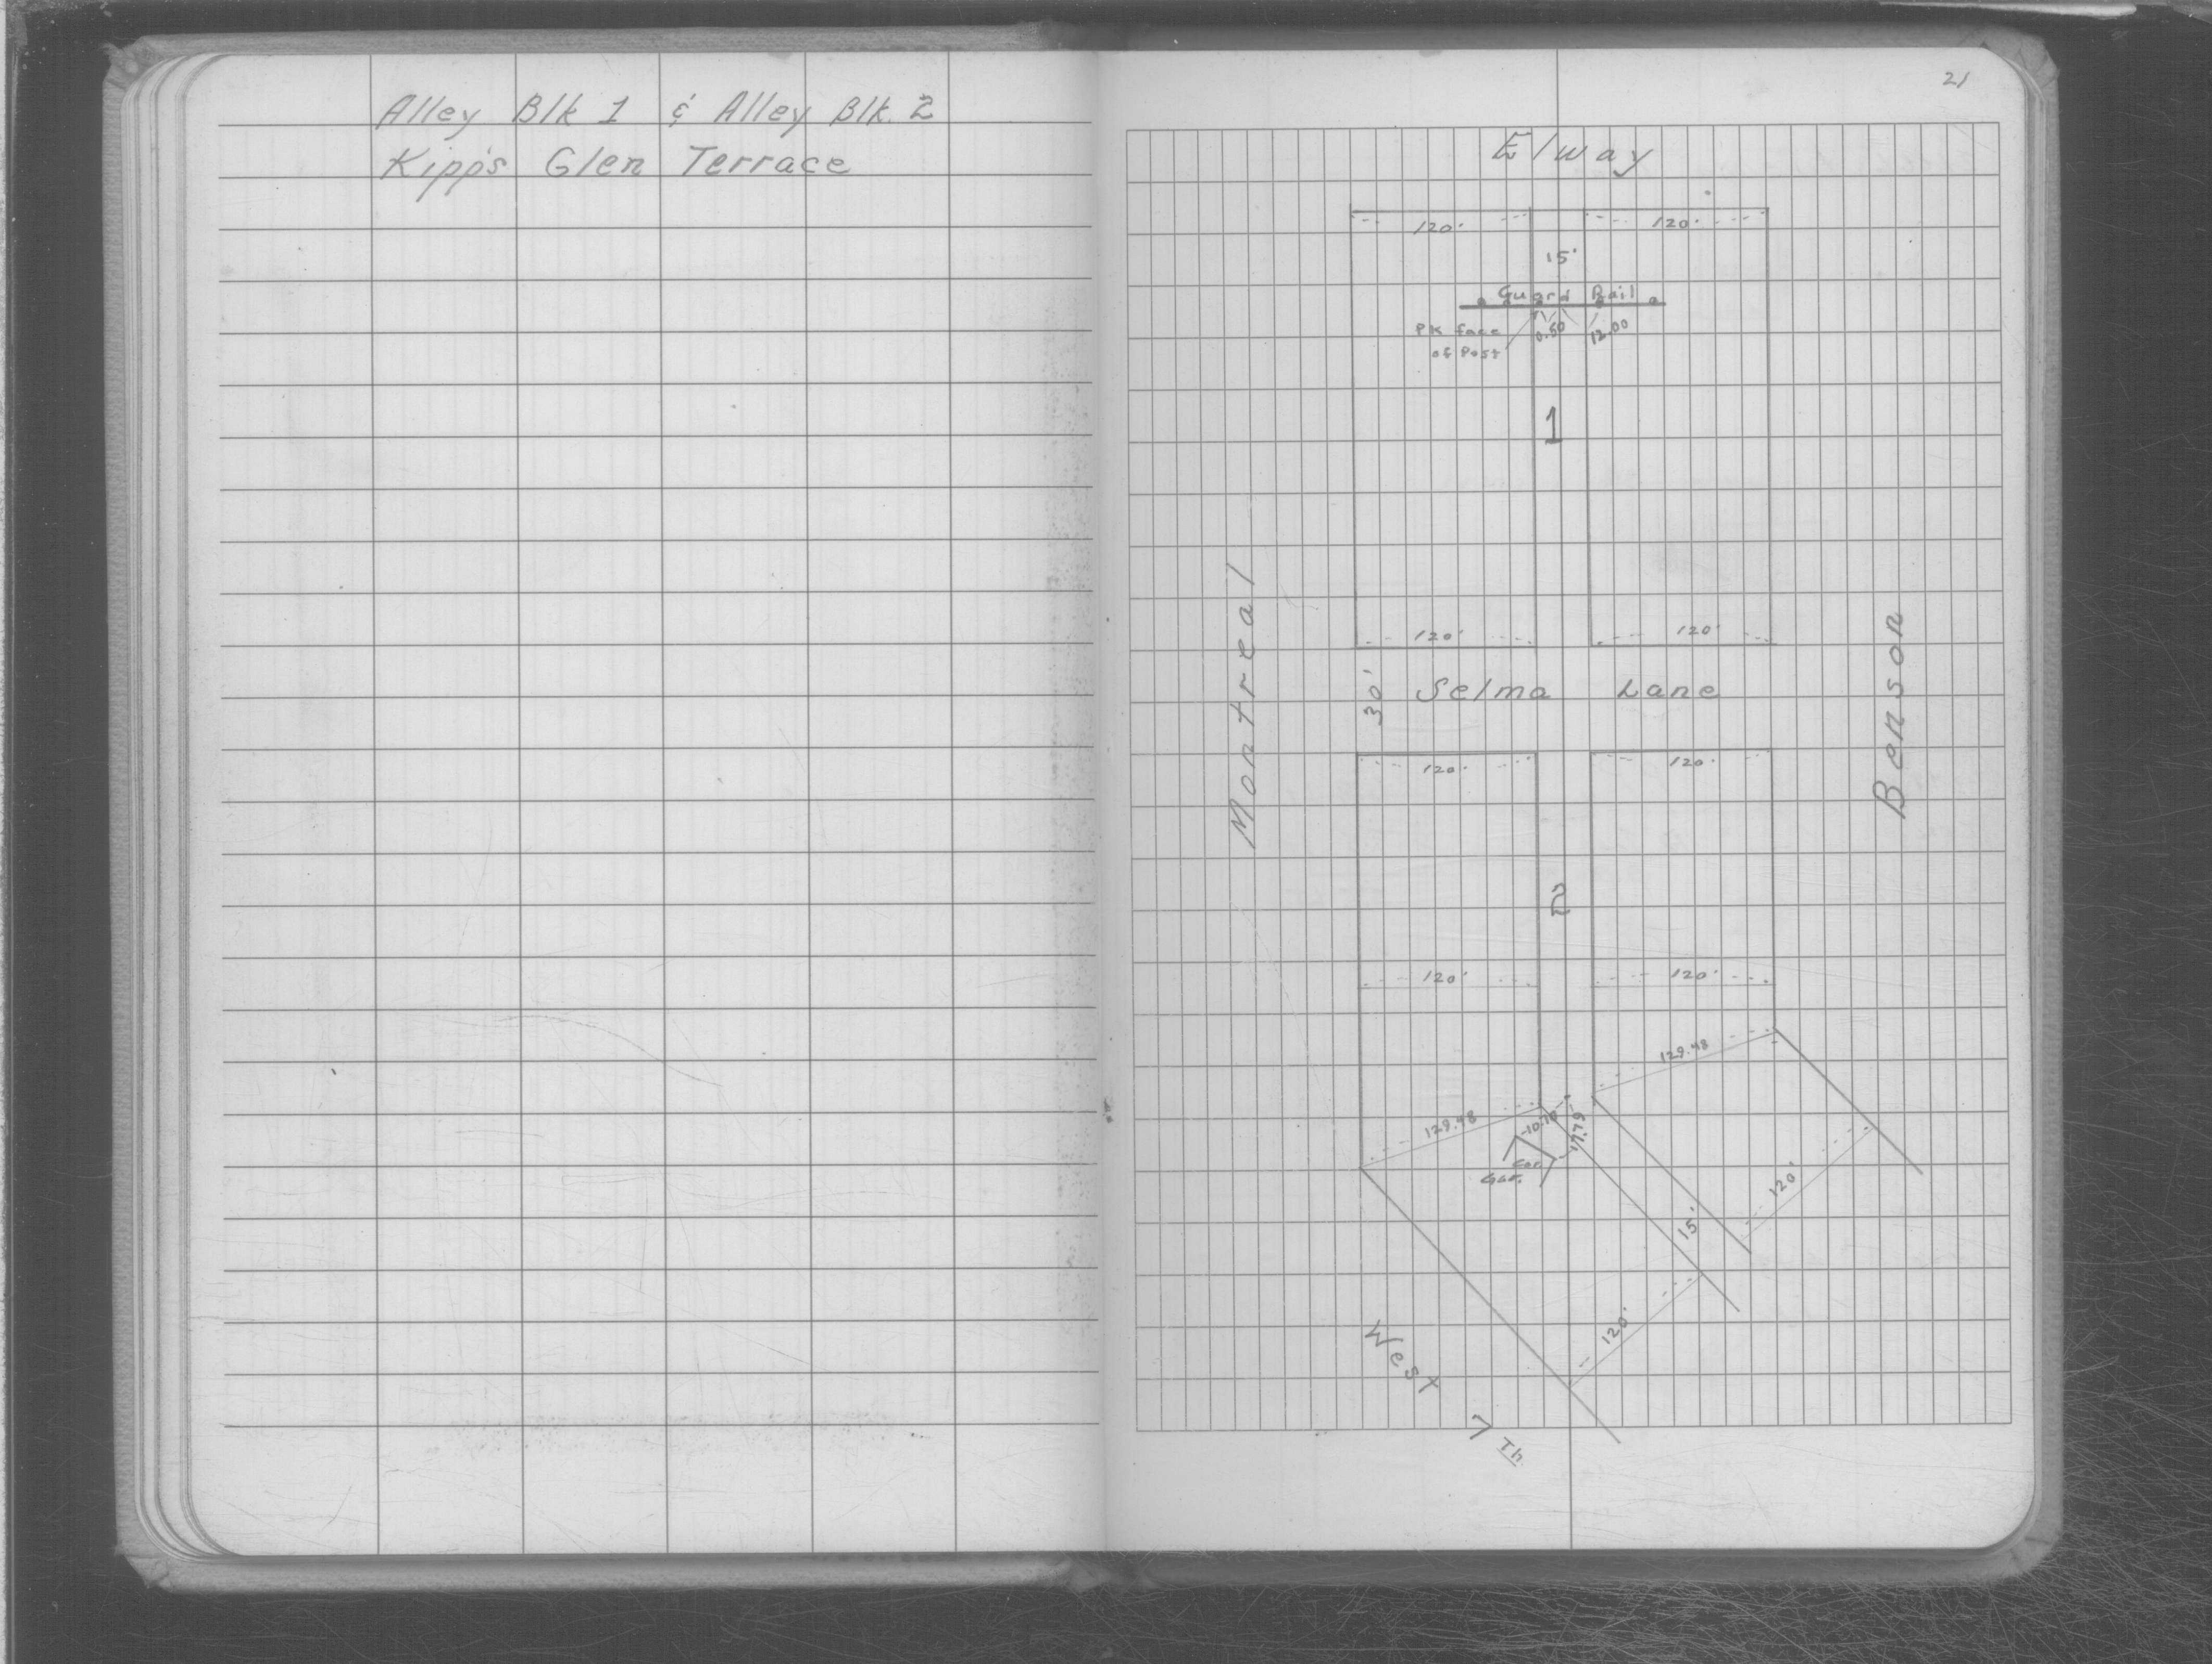 Alley Blk 1 & Alley Blk. 2
Kipp's Glen Terrace
21
Elway
120' 120'
15'
Guard Rail
PK face 0.60 12.00
of Post
1
Montreal
Benson
120' 120'
30' Selma Lane
120' 120'
2
120' 120'
129.48
129.48
17.79
Cor.
Gar.
120'
15'
120'
West
7
Th